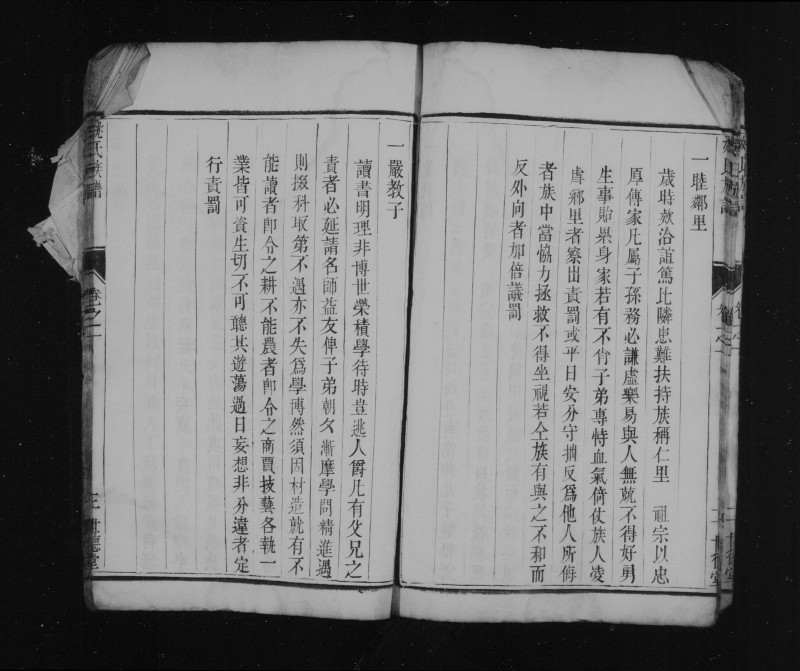 一睦鄰里
歲時欵洽誼篤比隣患難扶持族稱仁里 祖宗以忠
厚傳家凡屬子孫務必謙虛樂易與人無競不得好勇
生事貽累身家若有不肖子弟專恃血氣倚仗族人凌
虐鄉里者察出責罰或平日安分守拙反爲他人所侮
者族中當恊力拯救不得坐視若仝族有與之不和而
反外向者加倍議罰
一嚴教子
讀書明理非博世榮積學待時豈逃人爵凡有父兄之
責者必延請名師益友俾子弟朝夕漸摩學問精進遇
則掇科取第不遇亦不失爲學博然須因材造就有不
能讀者卽令之耕不能農者卽令之商賈技藝各執一
業皆可資生切不可聽其遊蕩過日妄想非分違者定
行責罰
氏族譜
卷之二
三 世德堂